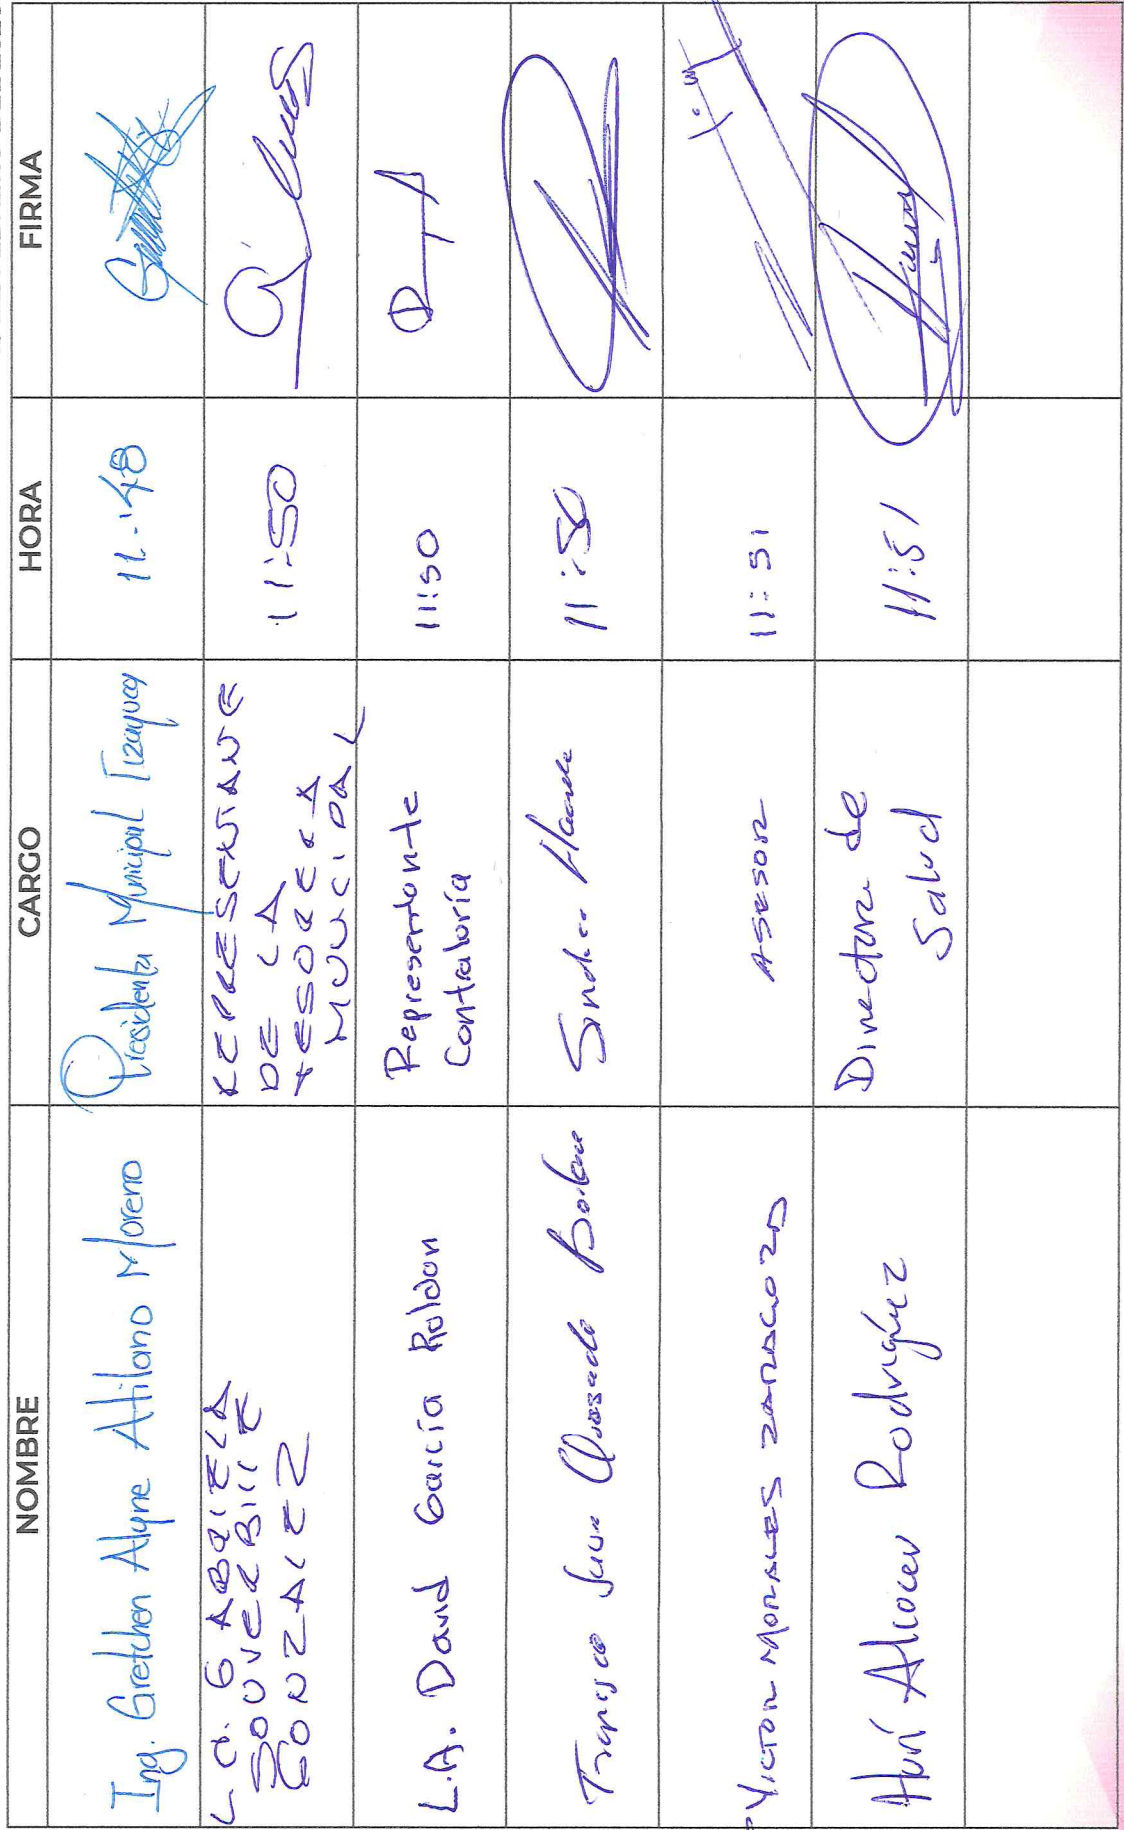 NOMBRE CARGO HORA FIRMA
Ing. Gretchen Alyne Atilano Moreno Presidenta Municipal Tizayuca 11:48
L.C. GABRIELA
SOUVERBILLE
GONZALEZ
REPRESENTANTE
DE LA
TESORERIA
MUNICIPAL
11:50
L.A. David García Roldan
Representante
Contraloría
11:50
Francisco Javier Quezada 11:50
VICTOR MORALES ZARAGOZA ASESOR 11:51
Alcocer Rodríguez
Directora de
Salud
11:51